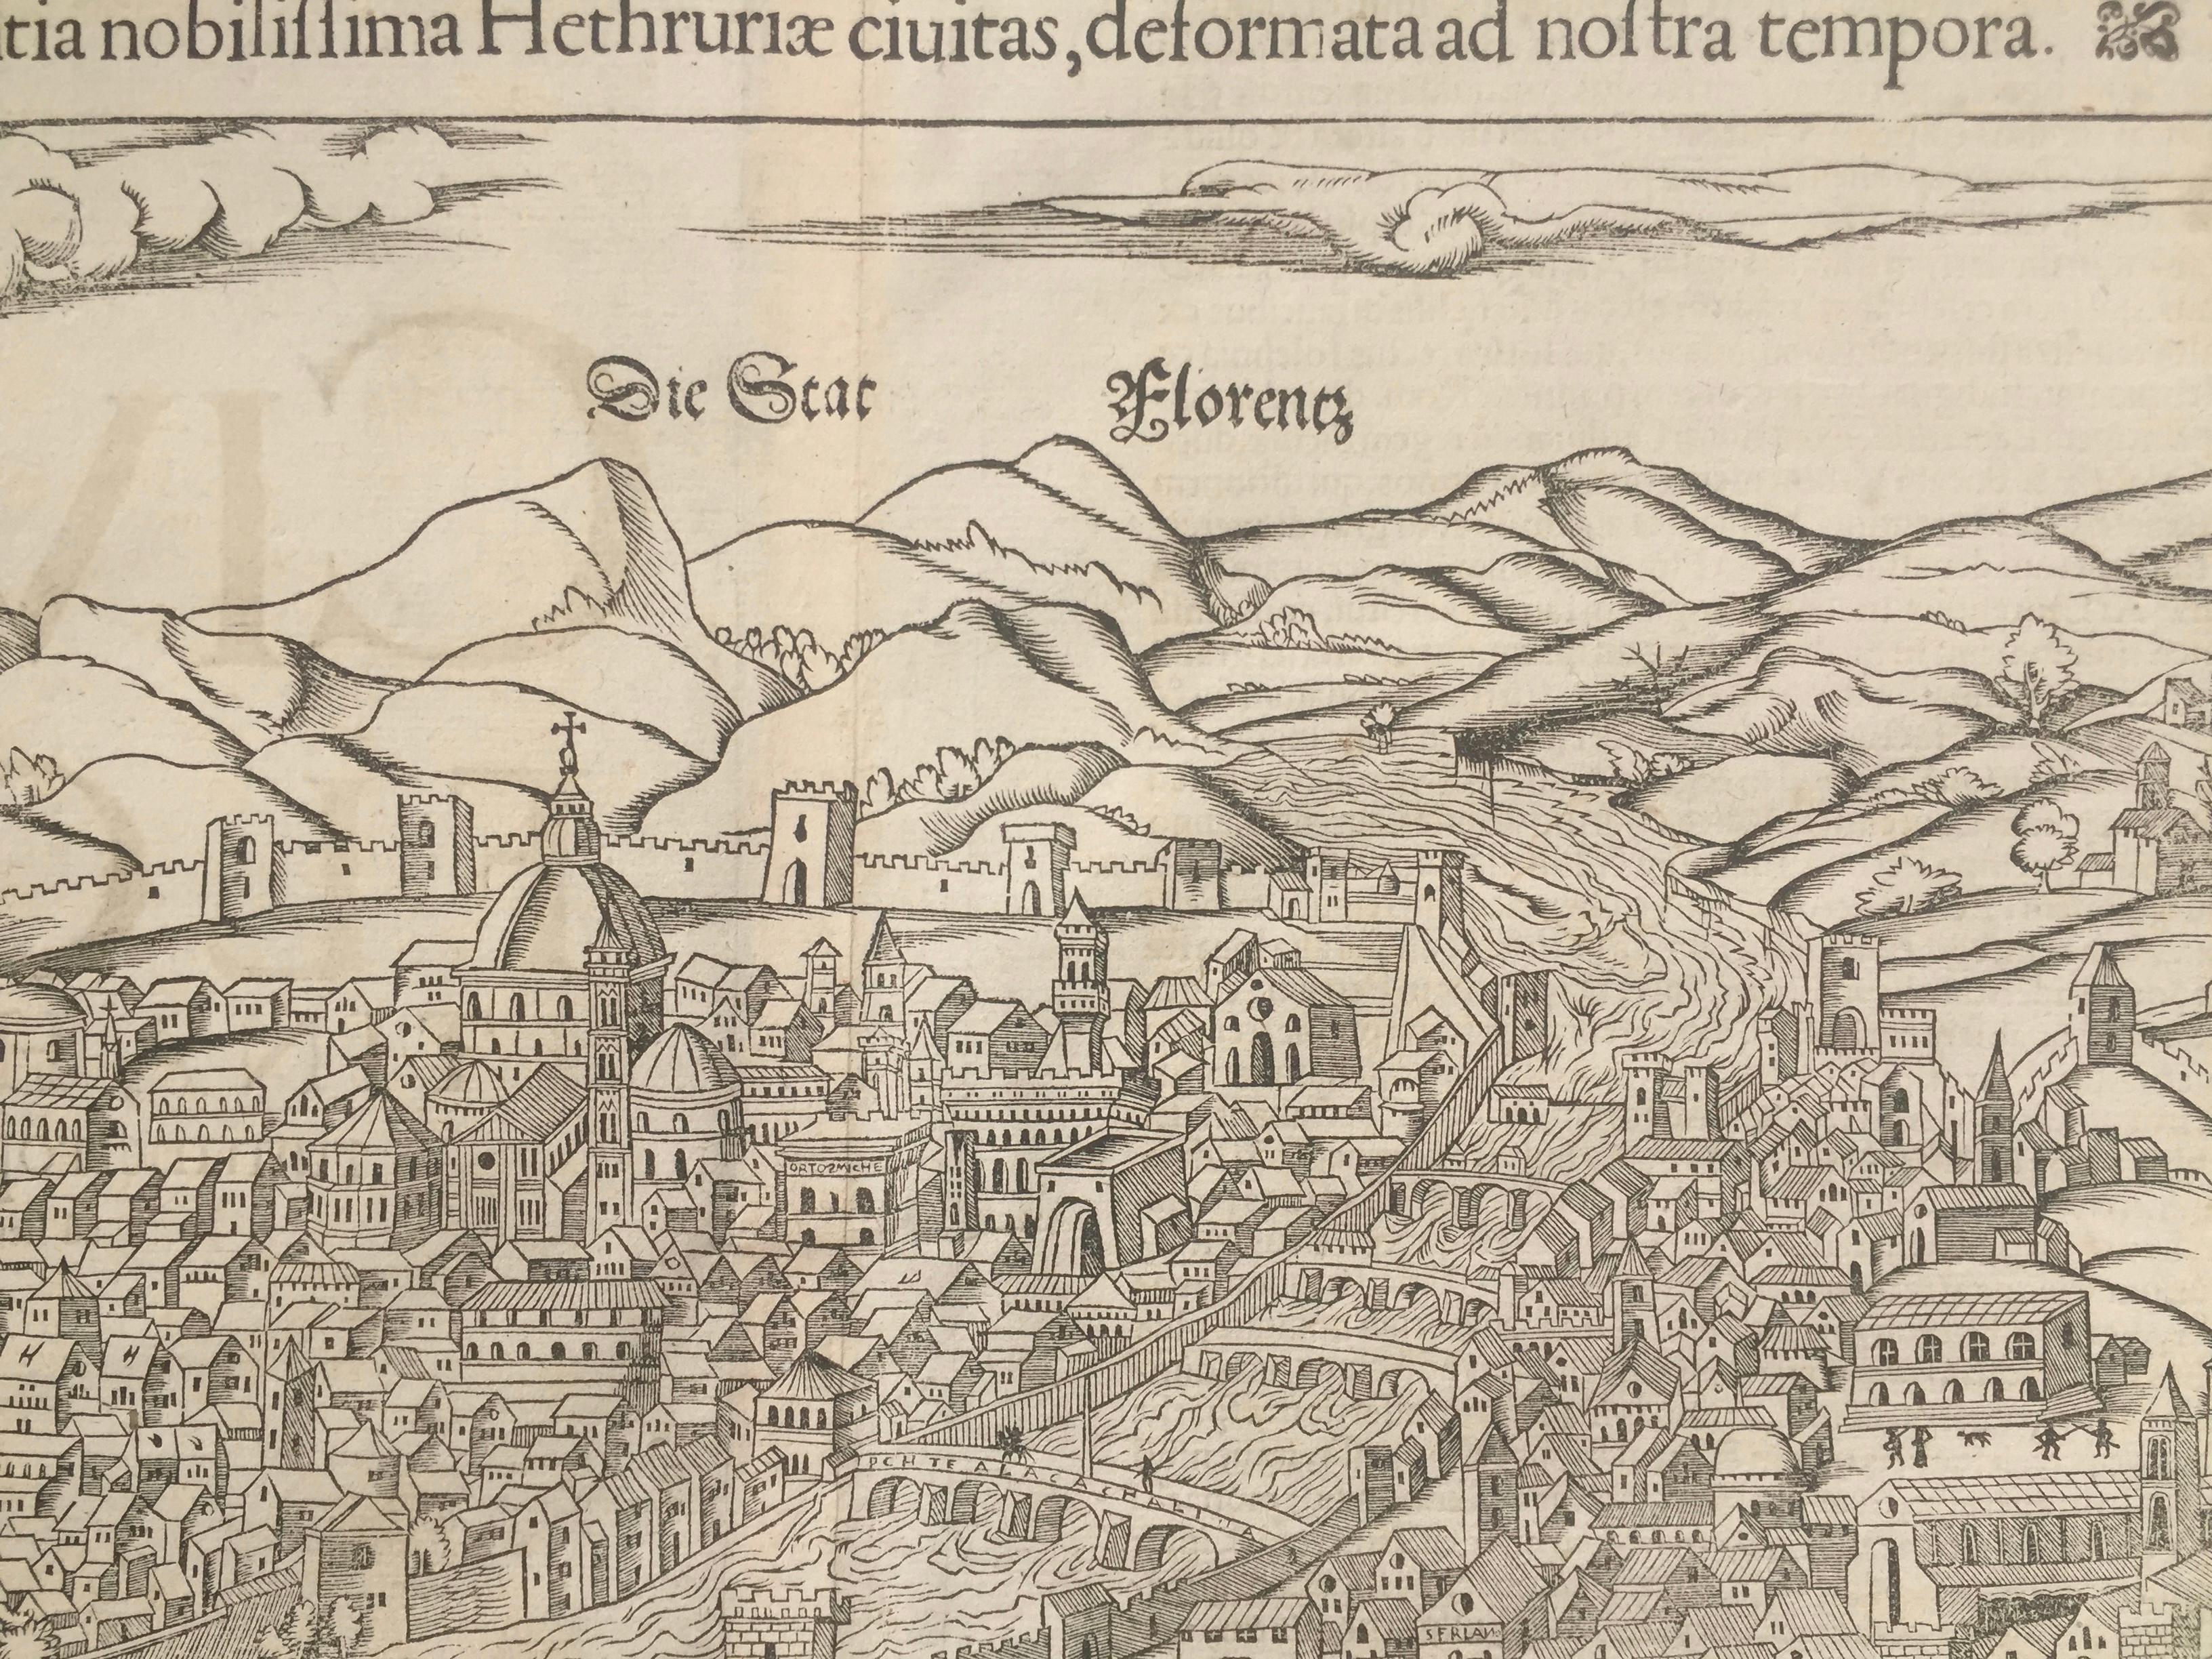 tia nobiliſſima Hethruriæ ciuitas, deformata ad noſtra tempora.
Die Stat Florentz
ORTOSMICHE
PCHTE ALACACHARIA
SFRIAN